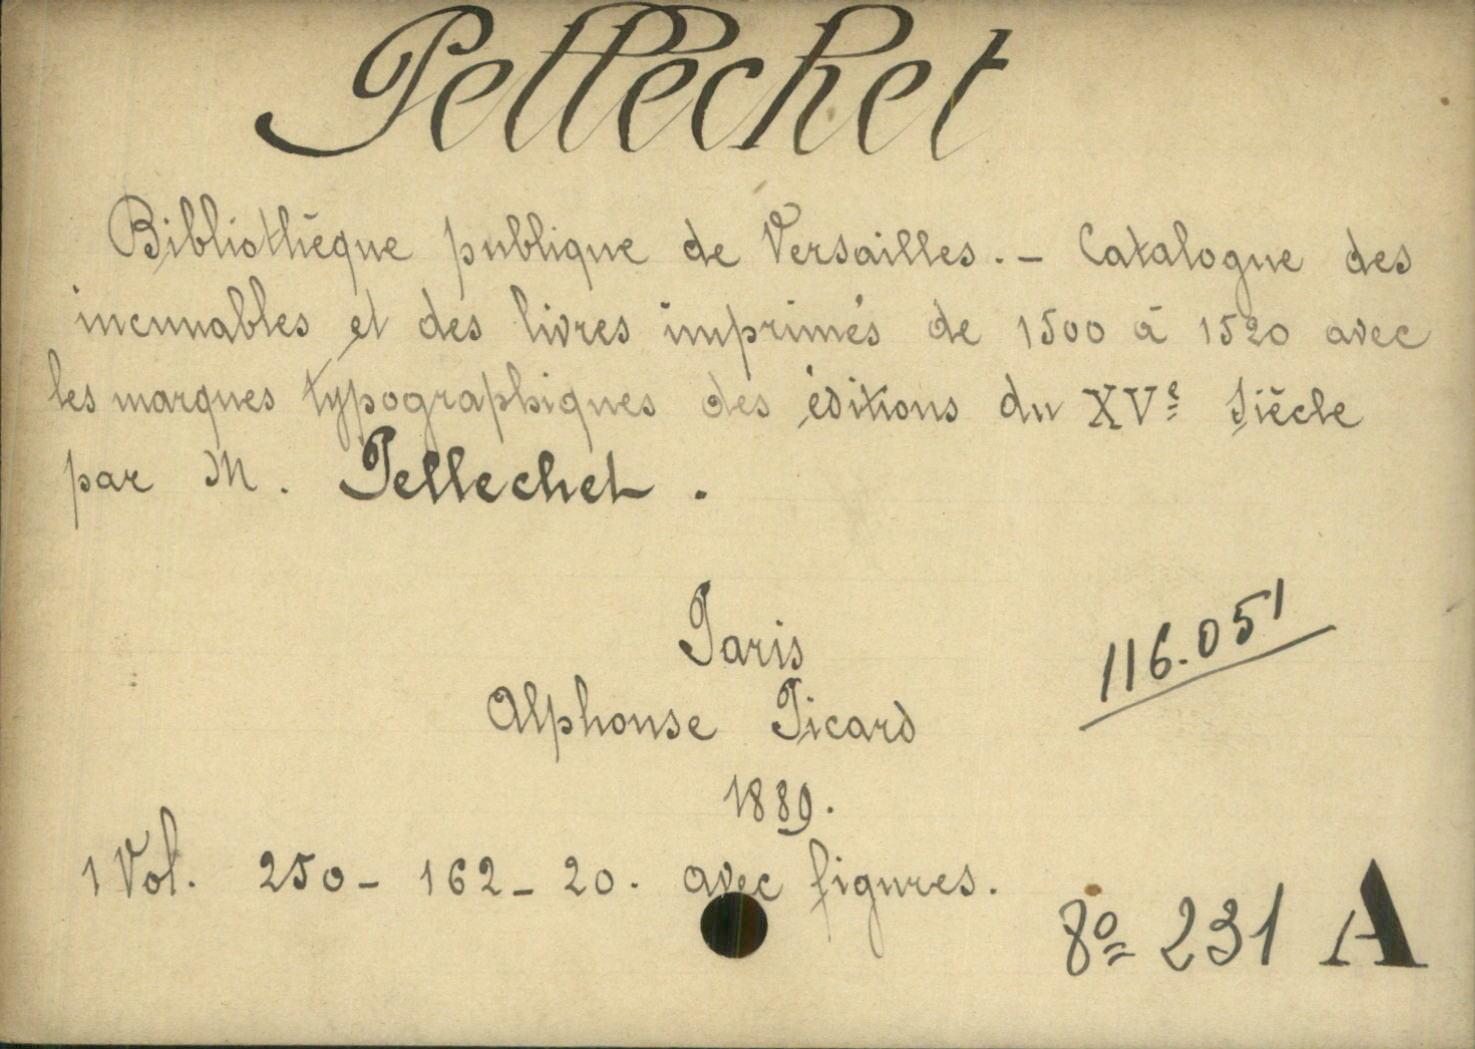 Pellechet
Bibliothèque publique de Versailles. - Catalogue des
incunables et des livres imprimés de 1500 à 1520 avec
les marques typographiques des éditions du XVe Siècle
par M. Pellechet.
Paris
116.051
Alphonse Picard
1889.
1 Vol. 250 - 162 - 20. avec figures.
8º 231 A